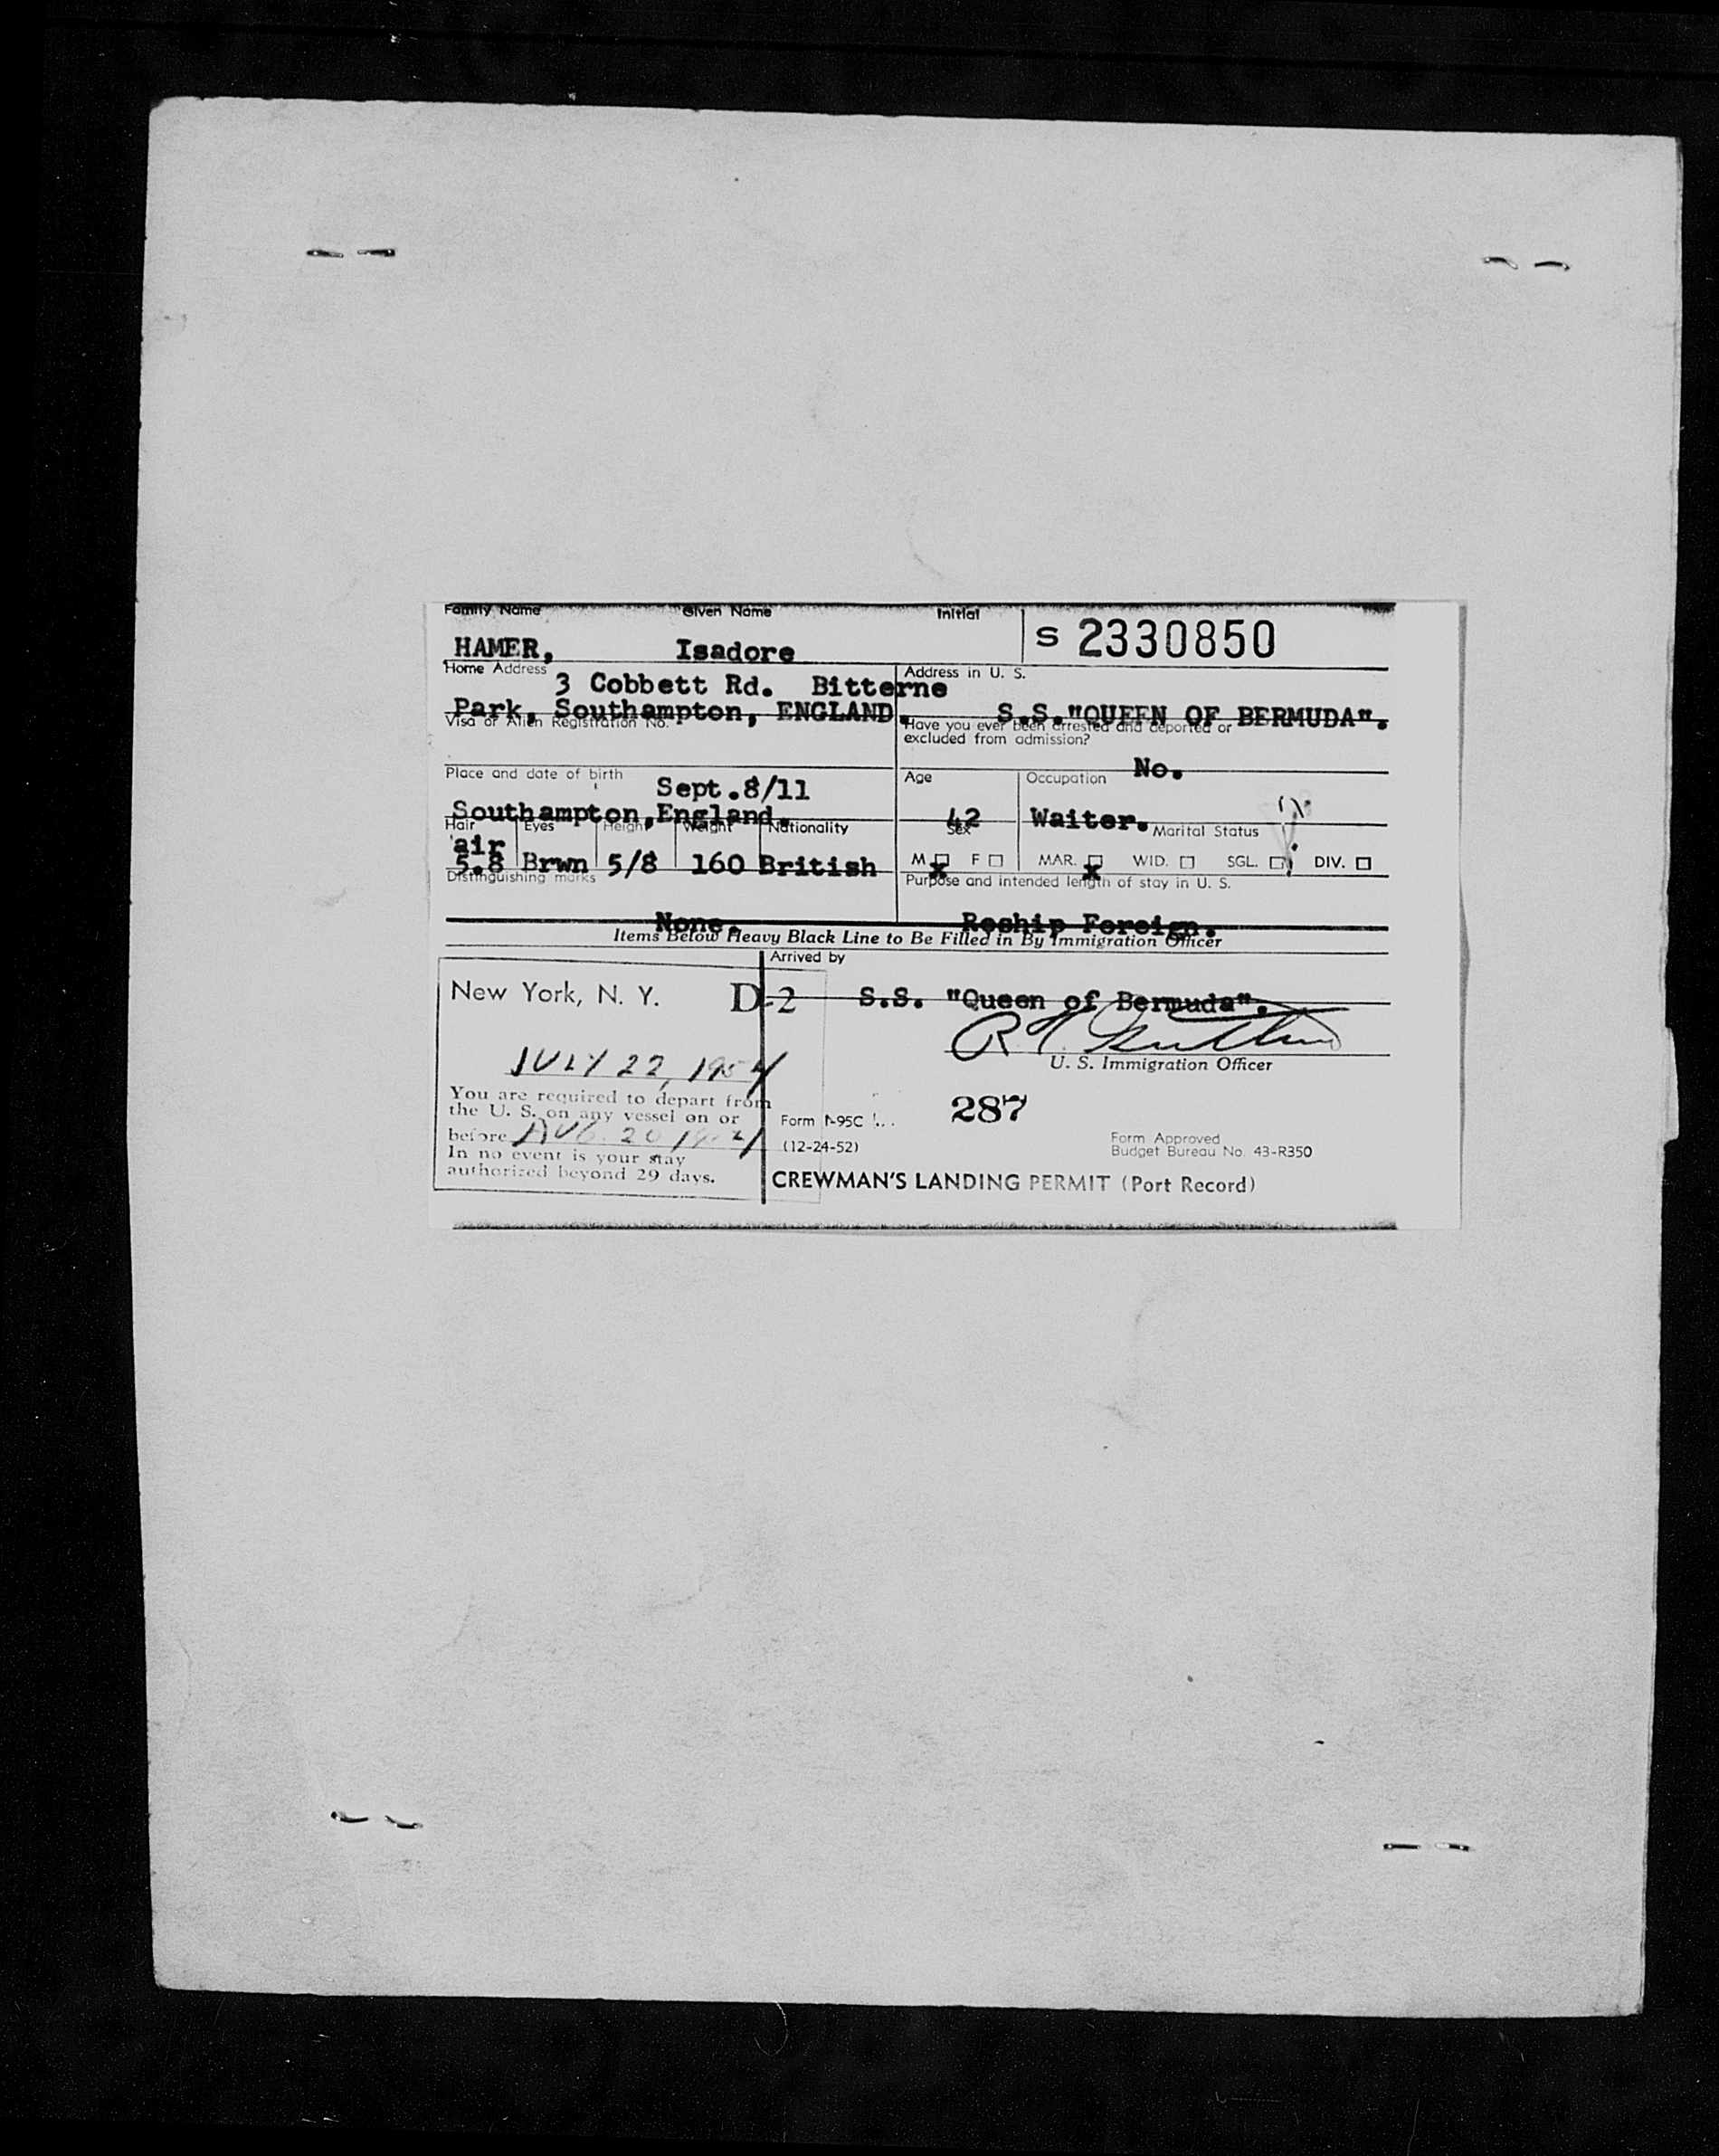 Family Name Given Name Initial
HAMER, Isadore S 2330850
Home Address Address in U. S.
3 Cobbett Rd. Bitterne
Park, Southampton, ENGLAND. S.S."QUEEN OF BERMUDA".
Visa or Alien Registration No. Have you ever been arrested and deported or
excluded from admission?
No.
Place and date of birth Age Occupation
Sept.8/11
Southampton,England. 42 Waiter.
Hair Eyes Height Weight Nationality Sex Marital Status
air
5.8 Brwn 5/8 160 British M F MAR. WID. SGL. DIV.
x x
Distinguishing marks Purpose and intended length of stay in U. S.
None. Reship Foreign.
Items Below Heavy Black Line to Be Filled in By Immigration Officer
Arrived by
New York, N. Y. D-2 S.S. "Queen of Bermuda".
JULY 22, 1954
U. S. Immigration Officer
You are required to depart from
the U. S. on any vessel on or
before AUG. 20 1954
In no event is your stay
authorized beyond 29 days.
287
Form I-95C
(12-24-52)
Form Approved
Budget Bureau No. 43-R350
CREWMAN'S LANDING PERMIT (Port Record)